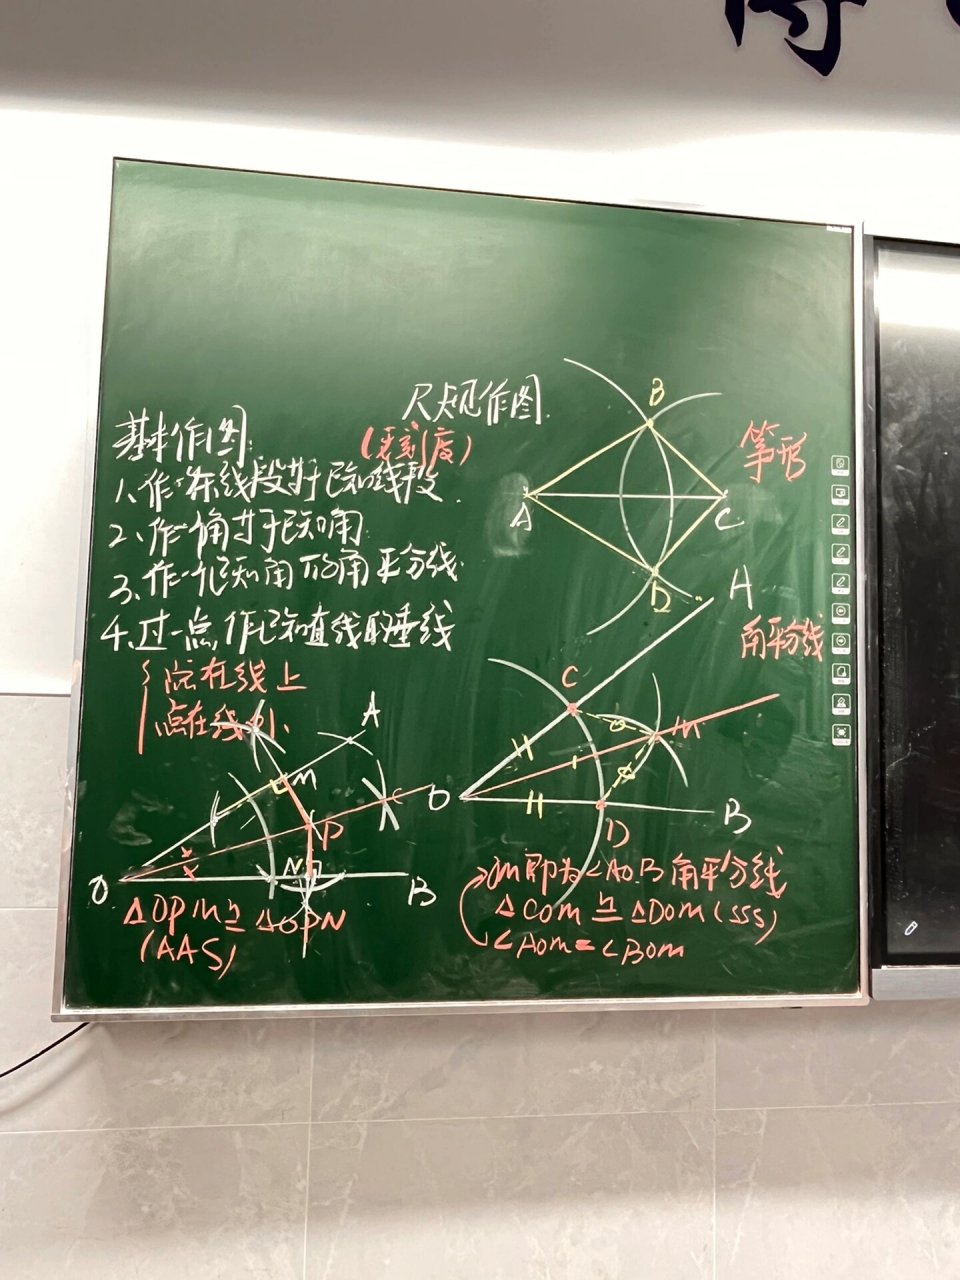 尺规作图
(无刻度)
基本作图:
1、作一条线段等于已知线段.
2、作一角等于已知角
3、作一个已知角的角平分线.
4、过一点,作已知直线的垂线
点在线上
点在线外
A
B
C
D
筝形
角平分线
A
C
M
O
B
D
OM即为∠AOB角平分线
△COM≌△DOM(SSS)
∠AOM=∠BOM
A
M
P
N
O
B
△OPM≌△OPN
(AAS)